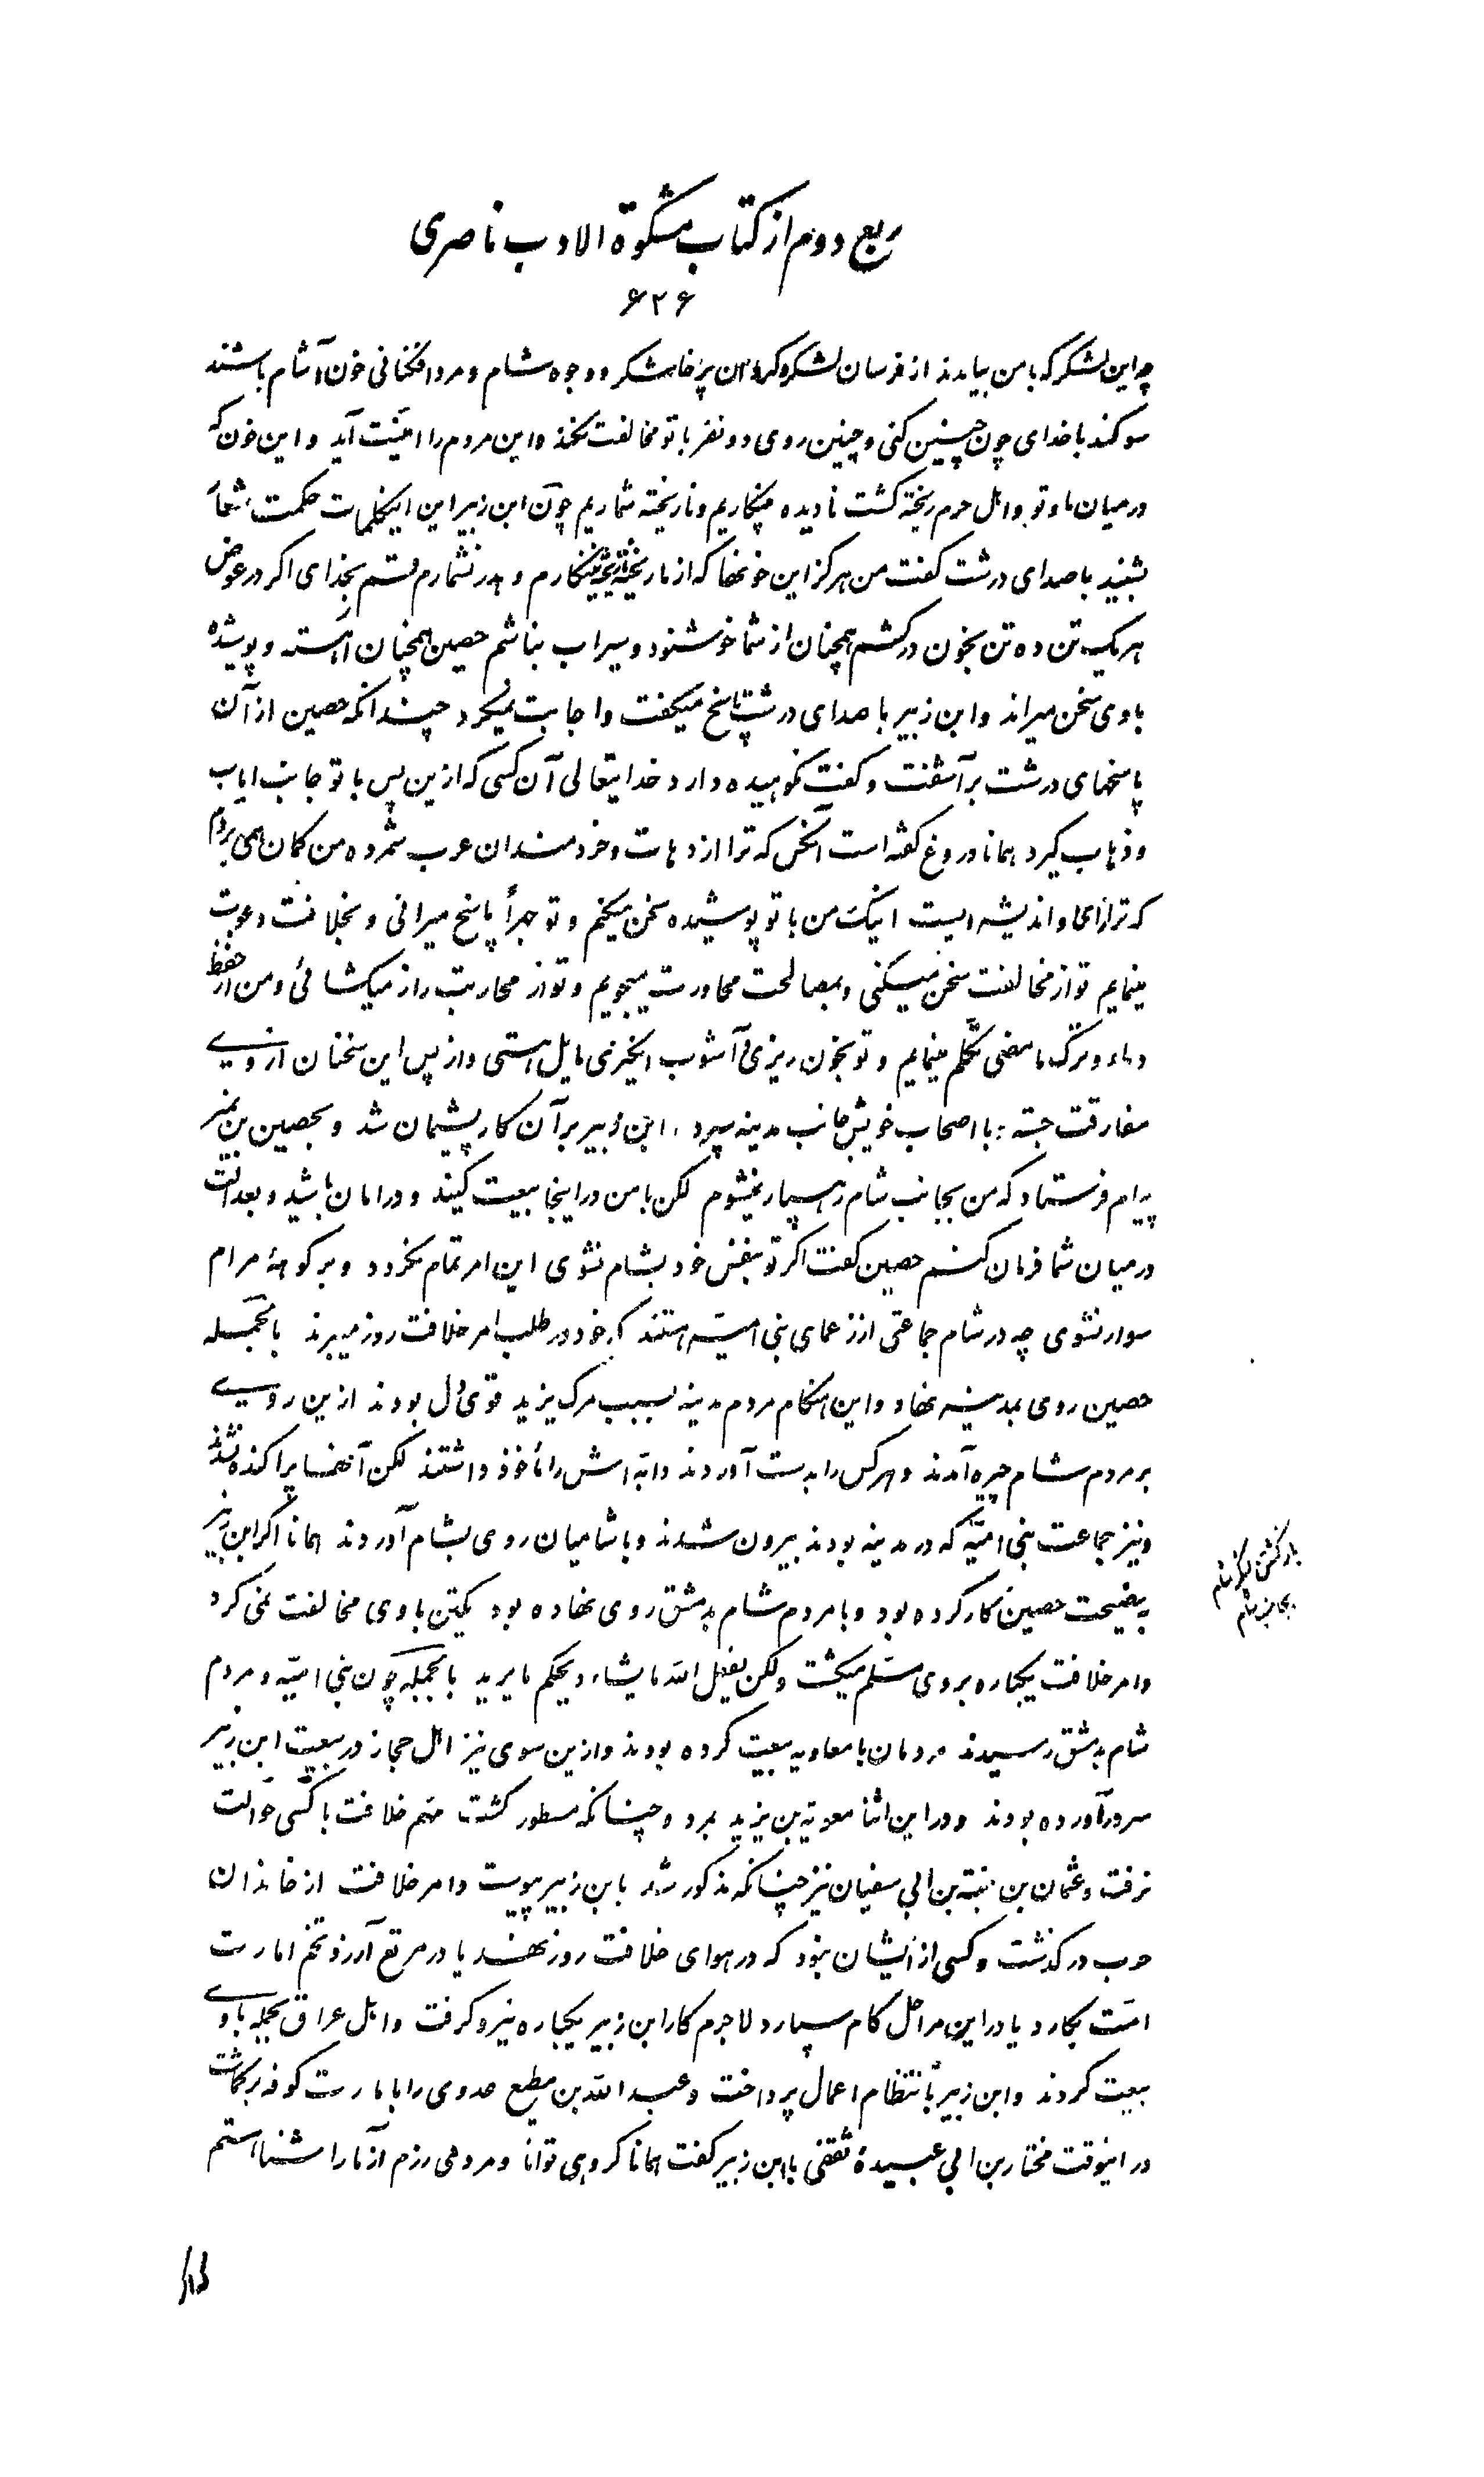 ربع دوم از کتاب مشکوة الادب ناصری
۶۲۶
چه این لشکر که با من بیامدند از فرسان لشکر و گردان پرخاشگر و وجوه شام و مردافکنانی خون آشام باشند
سوکند با خدای چون چنین کنی و چنین روی دو نفر با تو مخالفت نکند و این مردم را امنیّت آید و این خون که
در میان ما و تو و اهل حرم ریخته کشت نادیده پنکاریم و ناریخته شماریم چون ابن زبیر این اینکلمات حکمت شعار
بشنید با صدای درشت کفت من هرکز این خونها که از ما ریخته ناریخته نینکارم و هدر نشمارم قسم بخدای اکر در عوض
هر یک تن ده تن بخون در کشم همچنان از شما خوشنود و سیراب نباشم حصین همچنان آهسته و پوشیده
با وی سخن میراند و ابن زبیر با صدای درشت پاسخ میکفت و اجابت نمیکرد چندانکه حصین از آن
پاسخهای درشت برآشفت و کفت نکوهیده دارد خدایتعالی آن کسی که ازین پس با تو جانب ایاب
و ذهاب کیرد همانا دروغ کفته است آنکس که ترا از دهات و خردمندان عرب شمرده من کمان همی بردم
که ترا رای و اندیشه ایست اینک من با تو پوشیده سخن میکنم و تو جهراً پاسخ میرانی و بخلافت دعوت
مینمایم تو از مخالفت سخن میکنی و بمصالحت محاورت میجویم و تو از محاربت راز میکشائی و من از حفظ
دماء و ترک ما مضی تکلّم مینمایم و تو بخون ریزی و آشوب انگیزی مایل هستی و از پس این سخنان از وی
مفارقت جسته با اصحاب خویش جانب مدینه سپرد ابن زبیر بر آن کار پشیمان شد و بحصین بن نمیر
پیام فرستاد که من بجانب شام رهسپار نمیشوم لکن با من در اینجا بیعت کنید و در امان باشید و بعدالت
در میان شما فرمان کنم حصین کفت اکر تو بنفس خود بشام نشوی این امر تمام نکردد و بر کوههٔ مرام
سوار نشوی چه در شام جماعتی از زعمای بنی امیّه هستند که خود در طلب امر خلافت روز میبرند بالجمله
حصین روی بمدینه نهاد و این هنکام مردم مدینه بسبب مرک یزید قوی دل بودند ازین روی
بر مردم شام چیره آمدند و هر کس را بدست آوردند دابّه اش را مأخوذ داشتند لکن آنها پراکنده نشدند
و نیز جماعت بنی امیّه که در مدینه بودند بیرون شدند و با شامیان روی بشام آوردند همانا اکر ابن زبیر
بنصیحت حصین کار کرده بود و با مردم شام بدمشق روی نهاده بود یکتن با وی مخالفت نمی کرد
و امر خلافت یکباره بر وی مسلّم میکشت ولکن یفعل الله ما یشاء و یحکم ما یرید بالجمله چون بنی امیّه و مردم
شام بدمشق رسیدند مردمان با معاویه بیعت کرده بودند و ازین سوی نیز اهل حجاز در بیعت ابن زبیر
سر درآورده بودند و در این اثنا معویة بن یزید بمرد و چنانکه مسطور کشت مهم خلافت با کسی حوالت
نرفت و عثمان بن عنبسة بن ابی سفیان نیز چنانکه مذکور شد با ابن زبیر پیوست و امر خلافت از خاندان
حرب درکذشت و کسی از ایشان نبود که در هوای خلافت روز نهد یا در مرتع آرزو تخم امارت
امّت بکارد یا در این مراحل کام سپارد لاجرم کار ابن زبیر یکباره نیرو کرفت و اهل عراق بجمله با وی
بیعت کردند و ابن زبیر بانتظام اعمال پرداخت و عبد الله بن مطیع عدوی را بامارت کوفه برکماشت
در اینوقت مختار بن ابی عبیدهٔ ثقفی با ابن زبیر کفت همانا کروهی توانا و مردمی رزم آزما را شناسا هستم
بازکشتن لشکر شام
بجانب شام